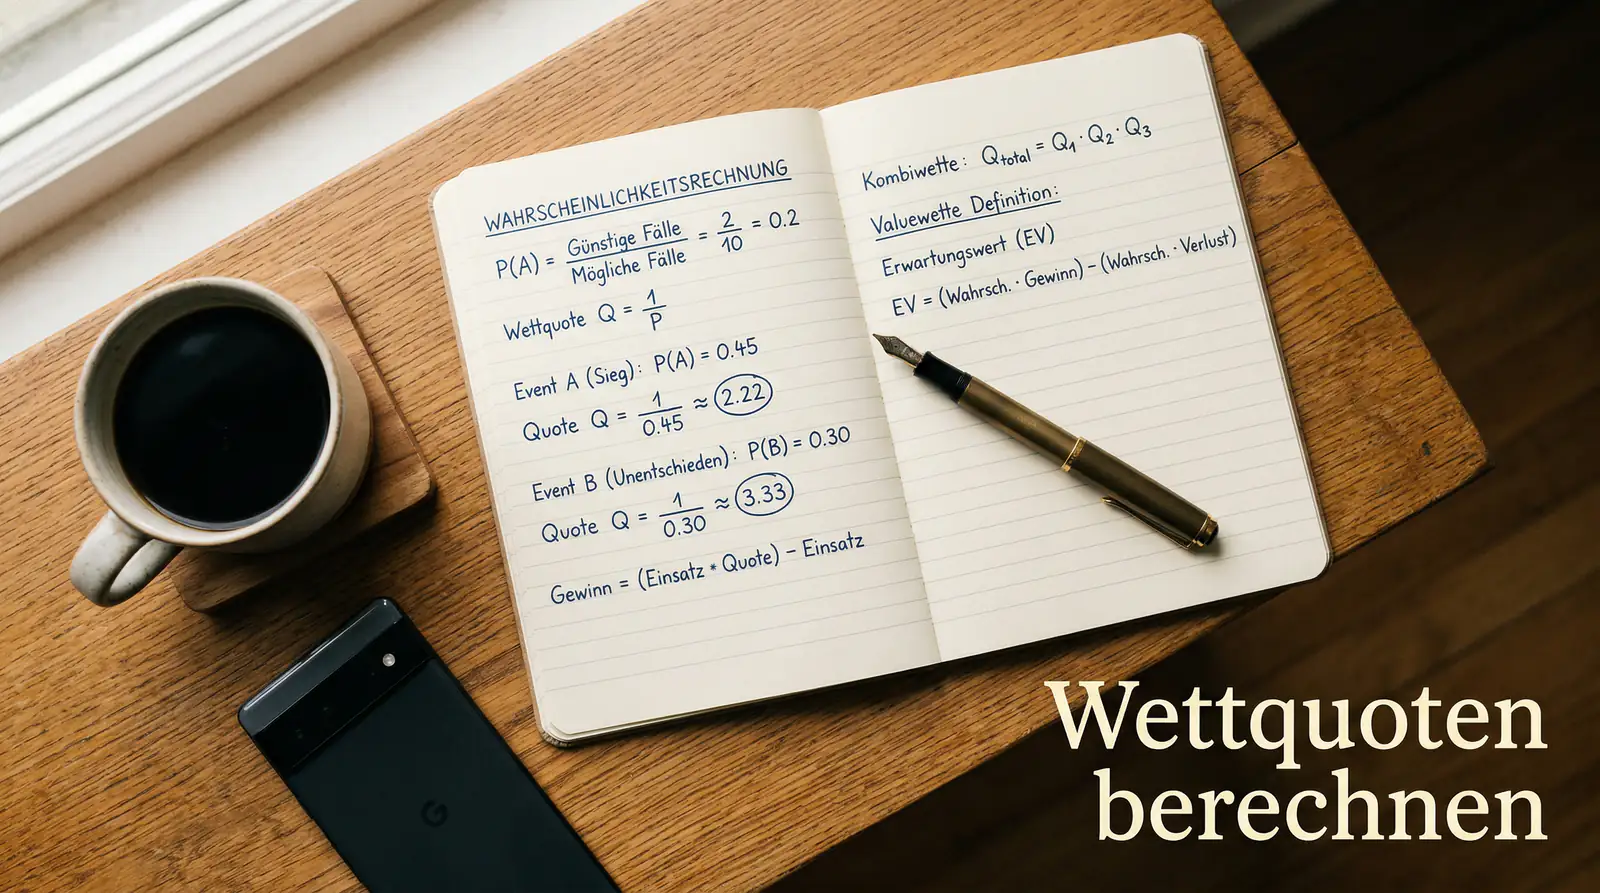 WAHRSCHEINLICHKEITSRECHNUNG
P(A) = Günstige Fälle / Mögliche Fälle = 2/10 = 0.2
Wettquote Q = 1/P
Event A (Sieg): P(A) = 0.45
Quote Q = 1/0.45 ≈ 2.22
Event B (Unentschieden): P(B) = 0.30
Quote Q = 1/0.30 ≈ 3.33
Gewinn = (Einsatz * Quote) – Einsatz
Kombiwette: Q_total = Q₁ · Q₂ · Q₃
Valuewette Definition:
Erwartungswert (EV)
EV = (Wahrsch. · Gewinn) – (Wahrsch. · Verlust)
G
Wettquoten
berechnen